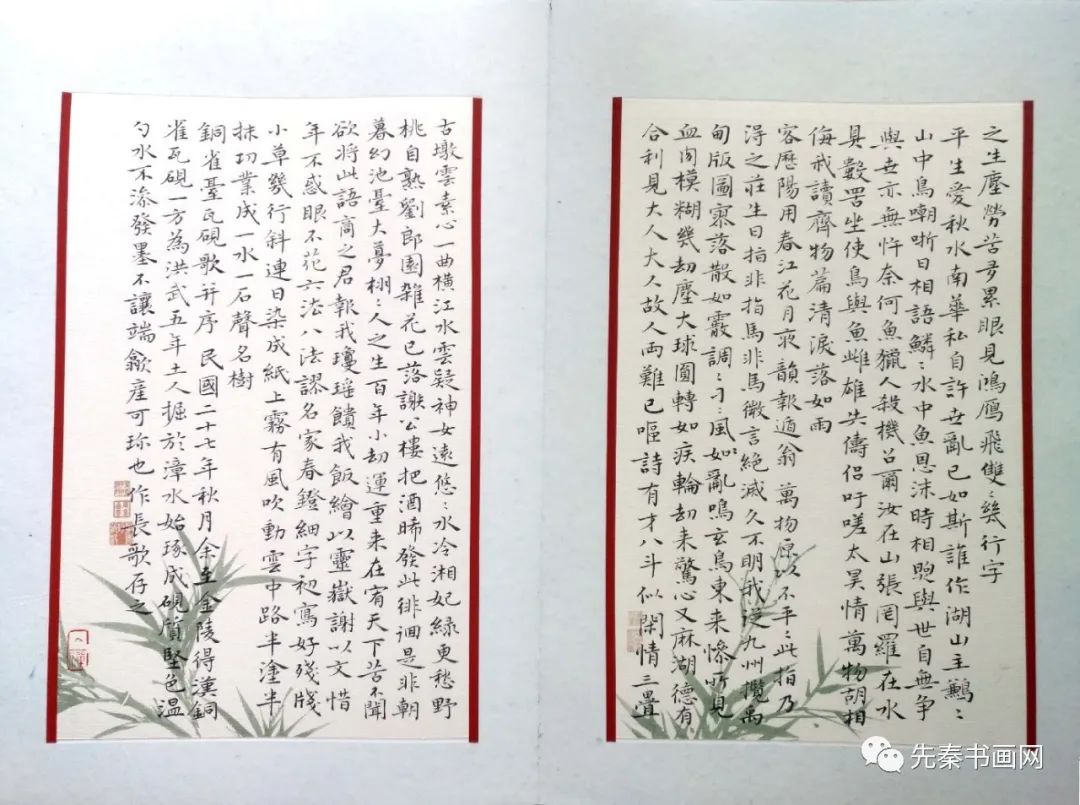 之生塵勞苦多累眼見鴻鴈飛雙〻幾行字
平生愛秋水南華私自許世亂已如斯誰作湖山主鸝〻
山中鳥嘲哳日相語鱗〻水中魚恩沫時相煦與世自無争
與世亦無忤奈何魚獵人殺機召爾汝在山張罔羅在水
具數罟坐使鳥與魚雌雄失儔侣吁嗟太昊情萬物胡相
侮我讀齊物篇清淚落如雨
客歷陽用春江花月夜韻報遁翁 萬物原以不平〻此指乃
得之莊生曰指非指馬非馬微言絶滅久不明我從九州攬禹
甸版圖寥落散如霰調〻刁〻風如亂鳴玄鳥東来慘所見
血肉模糊幾劫塵大球圓轉如疾輪劫来驚心又麻湖德有
合利見大人大人故人两難已嘔詩有才八斗似閑情三疊
古墩雲素心一曲横江水雲疑神女遠悠〻水冷湘妃緑更愁野
桃自熟劉郎園雜花已落謝公樓把酒晞發此徘徊是非朝
暮幻池臺大夢栩〻人之生百年小劫運重来在宥天下苦不聞
欲將此語商之君報我瓊瑶饋我飯繪以靈嶽謝以文惜
年不惑眼不花六法八法謬名家春鐙細字初寫好殘牋
小草幾行斜連日染成紙上霧有風吹動雲中路半塗半
抹功業成一水一石聲名樹
銅雀臺瓦硯歌并序 民國二十七年秋月余至金陵得漢銅
雀瓦硯一方為洪武五年土人掘於漳水始琢成硯質堅色温
勺水不滲發墨不讓端歙産可珎也作長歌存之
先秦书画网